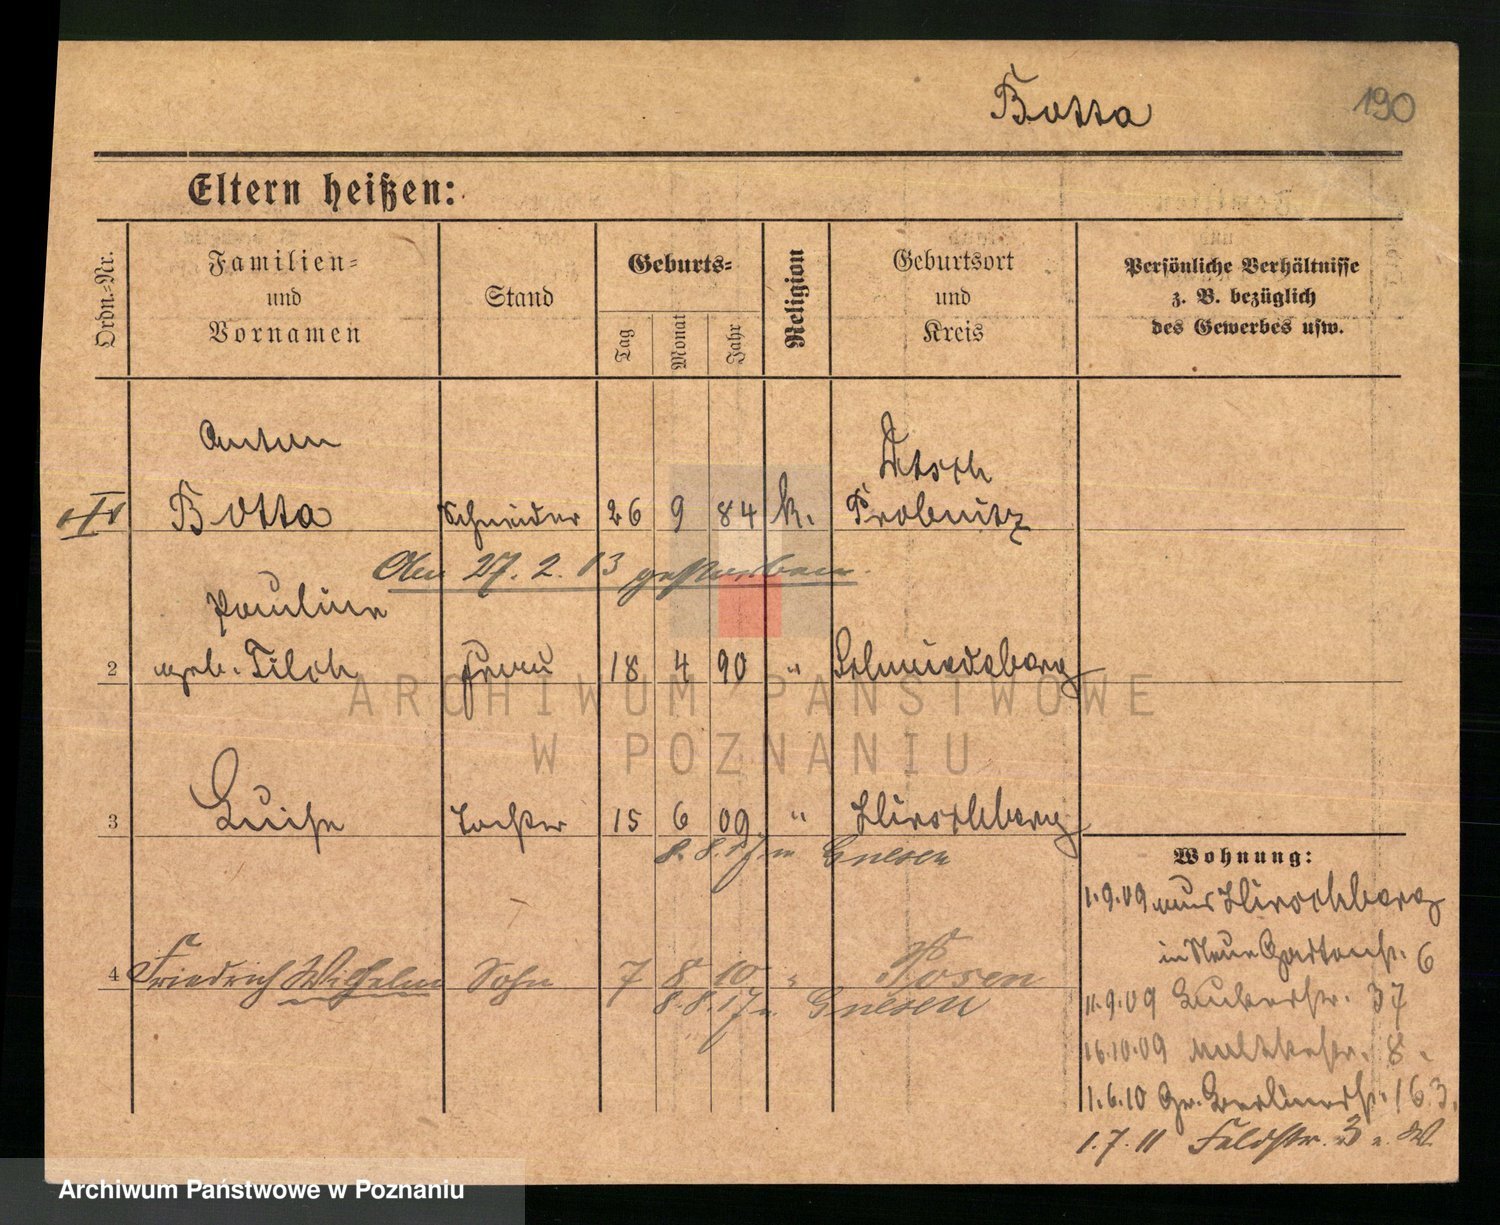 Botta
190
Eltern heißen:
Ordn.-Nr.
Familien-
und
Vornamen
Stand
Geburts-
Tag
Monat
Jahr
Religion
Geburtsort
und
Kreis
Persönliche Verhältnisse
z. B. bezüglich
des Gewerbes usw.
Anton
Botta
Schneider
26
9
84
k.
Dtsch
Probnitz
Am 27. 2. 13 gestorben.
Pauline
geb. Tilch
2
Frau
18
4
90
"
Schmiedeberg
3
Luise
Tochter
15
6
09
"
Hirschberg
8. 8. 17 n Gnesen
4
Friedrich Wilhelm
Sohn
7
8
10
"
Posen
8. 8. 17 n. Gnesen
Wohnung:
1.9.09 aus Hirschberg
in Neue Gartenstr. 6
11.9.09 37
16.10.09 Moltkestr. 8.
1.6.10 Gr. Berlinerstr. 163.
1.7.11 Feldstr. 3 a. W.
ARCHIWUM PAŃSTWOWE
W POZNANIU
Archiwum Państwowe w Poznaniu